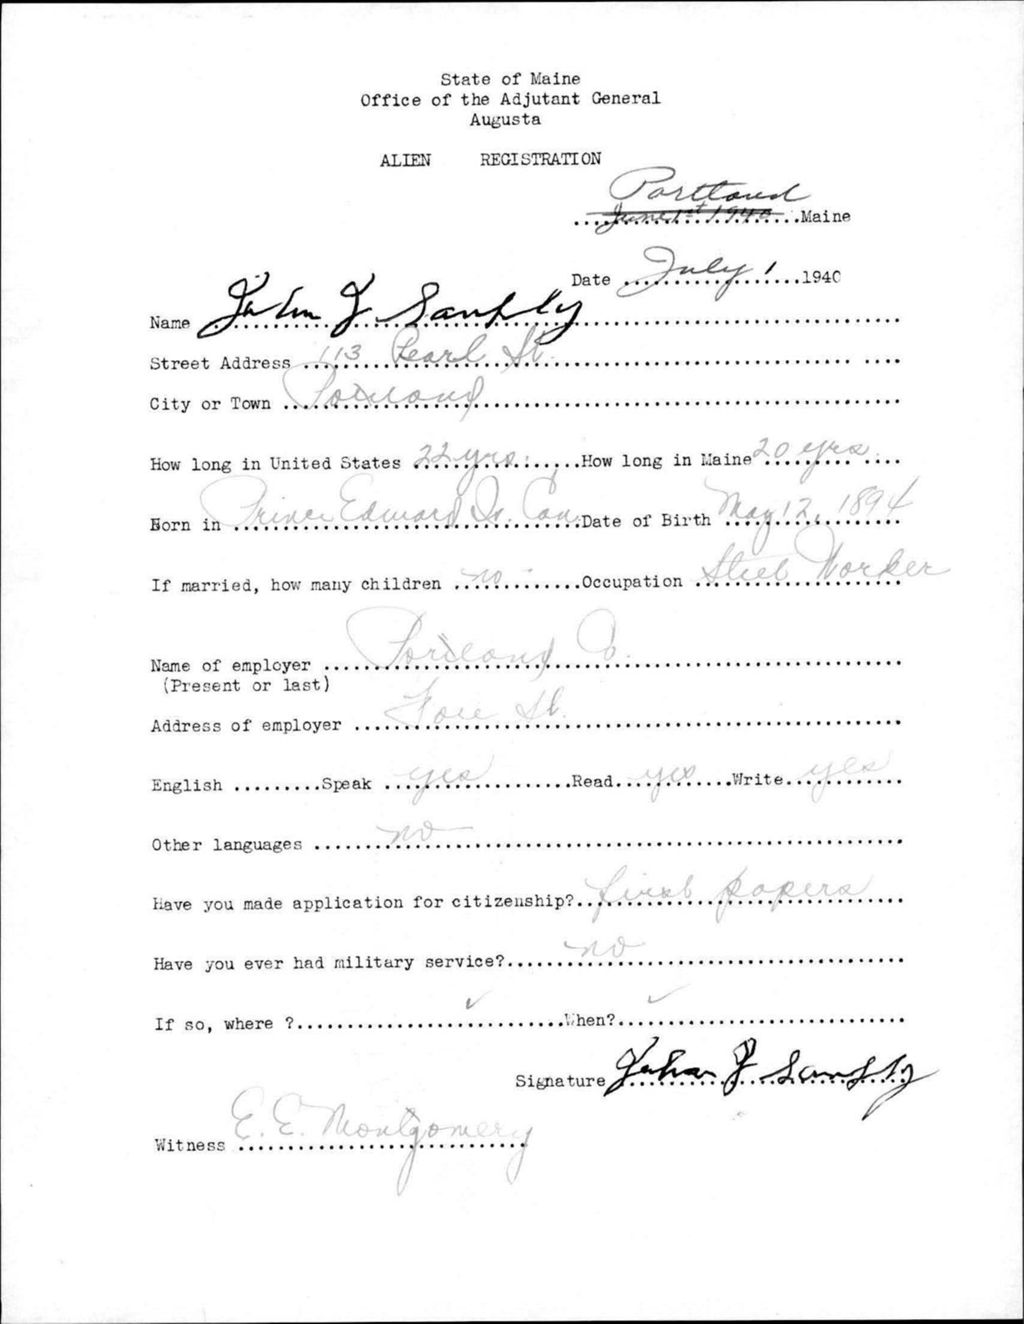 State of Maine
Office of the Adjutant General
Augusta
ALIEN REGISTRATION
Portland
June 1st 1940 Maine
Date July 1 1940
Name John J
Street Address 113 Pearl St.
City or Town Portland
How long in United States 22 yrs. How long in Maine 20 yrs
Born in Prince Edward Is. Can. Date of Birth May 12, 1894
If married, how many children no Occupation Steel Worker
Name of employer Portland Co.
(Present or last)
Address of employer Fore St.
English Speak yes Read yes Write yes
Other languages no
Have you made application for citizenship? first papers
Have you ever had military service? no
If so, where ? ✓ When? ✓
Signature John J
Witness E. E. Montgomery